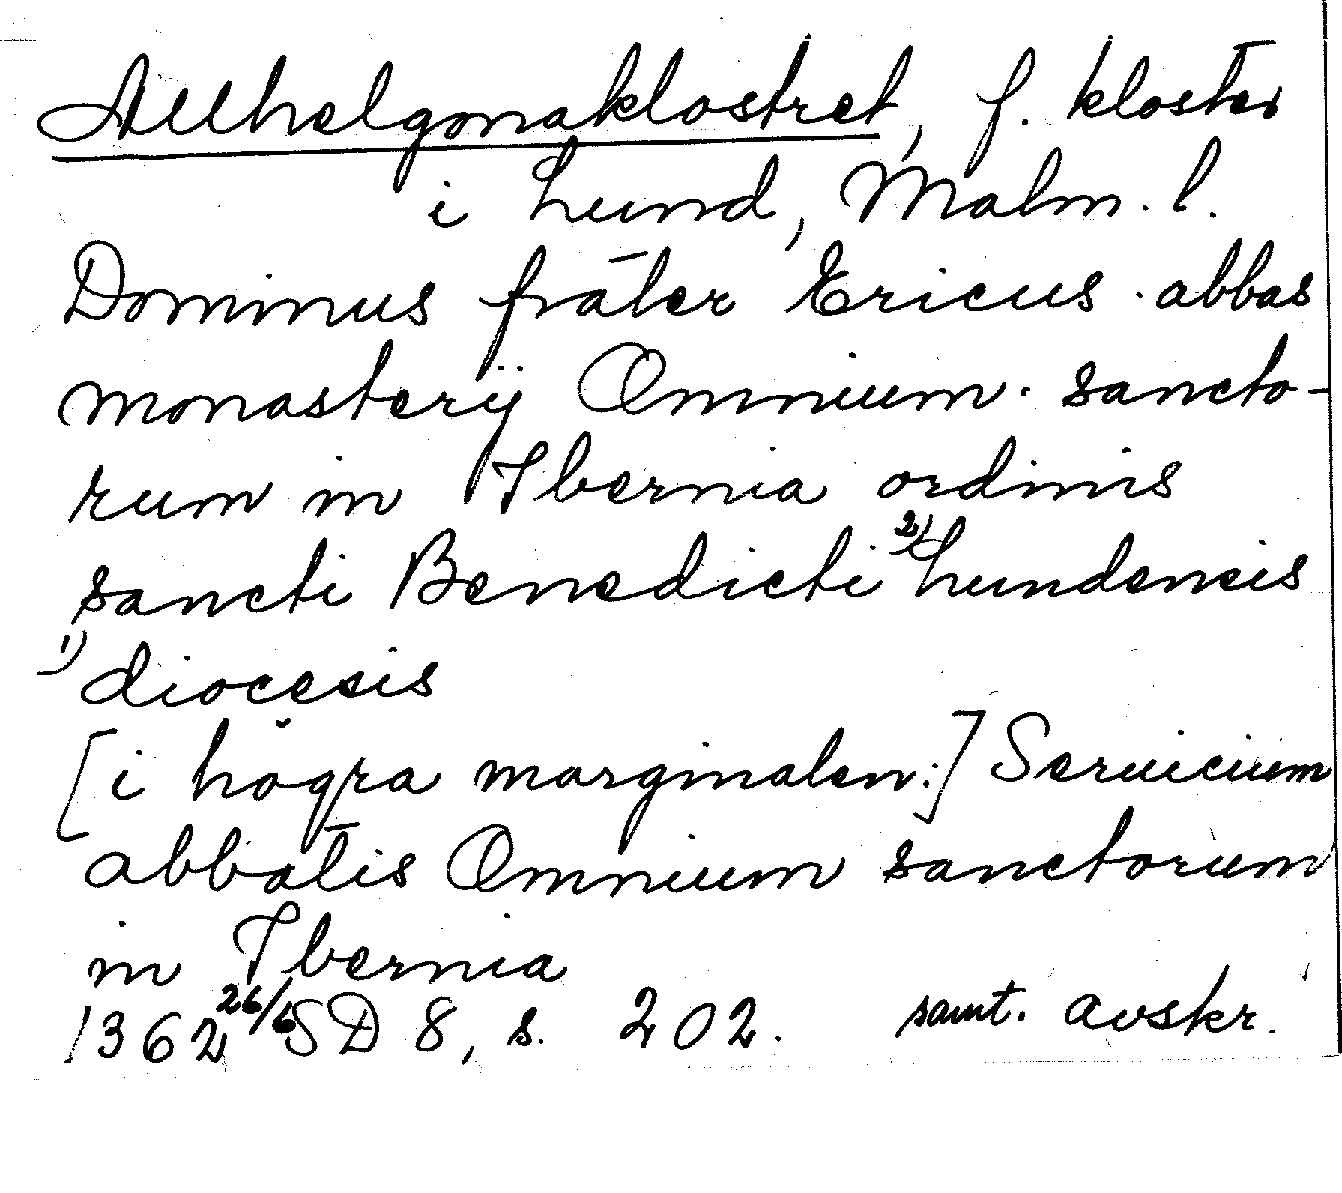 Allhelgonaklostret, f. kloster
i Lund, Malm. l.
Dominus frater Ericus abbas
monasterij Omnium sancto-
rum in Ibernia ordinis
sancti Benedicti 2) Lundencis
1) diocesis
[i högra marginalen:] Seruicium
abbatis Omnium sanctorum
in Ibernia
1362 26/6 SD 8, s. 202. samt. avskr.